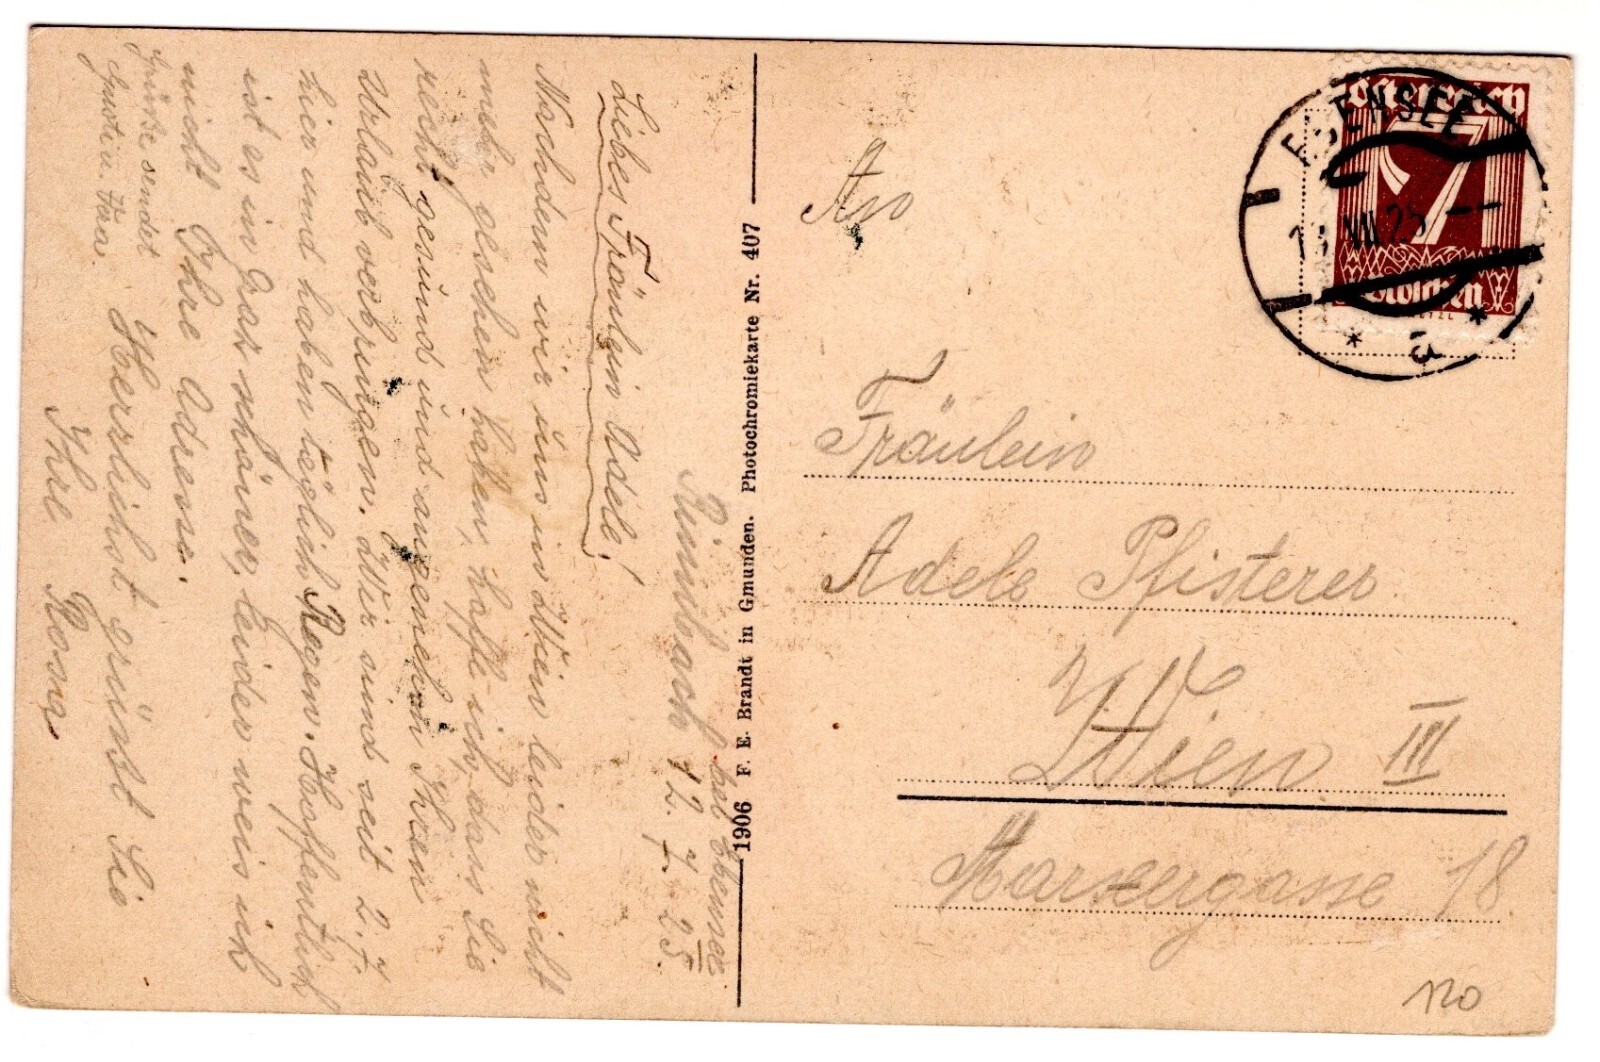 Rindbach 12. 7. 25.
bei Ebensee
Liebes Fräulein Adele!
Nachdem wir uns in Wien leider nicht
mehr gesehen haben, hoffe ich, dass Sie
recht gesund und angenehm Ihren
Urlaub verbringen. Wir sind seit 2. 7.
hier und haben täglich Regen. Hoffentlich
ist es in Graz schöner, leider weis ich
nicht Ihre Adresse.
Herzlichst grüsst Sie
Ihre Rosa
Grüsse sendet
Gusti u. Frau
1906 F. E. Brandt in Gmunden. Photochromiekarte Nr. 407
An
Fräulein
Adele Pfisterer
Wien III
Marxergasse 18
120
Österreich
7
Groschen
EBENSEE
VII 25
* 3 *